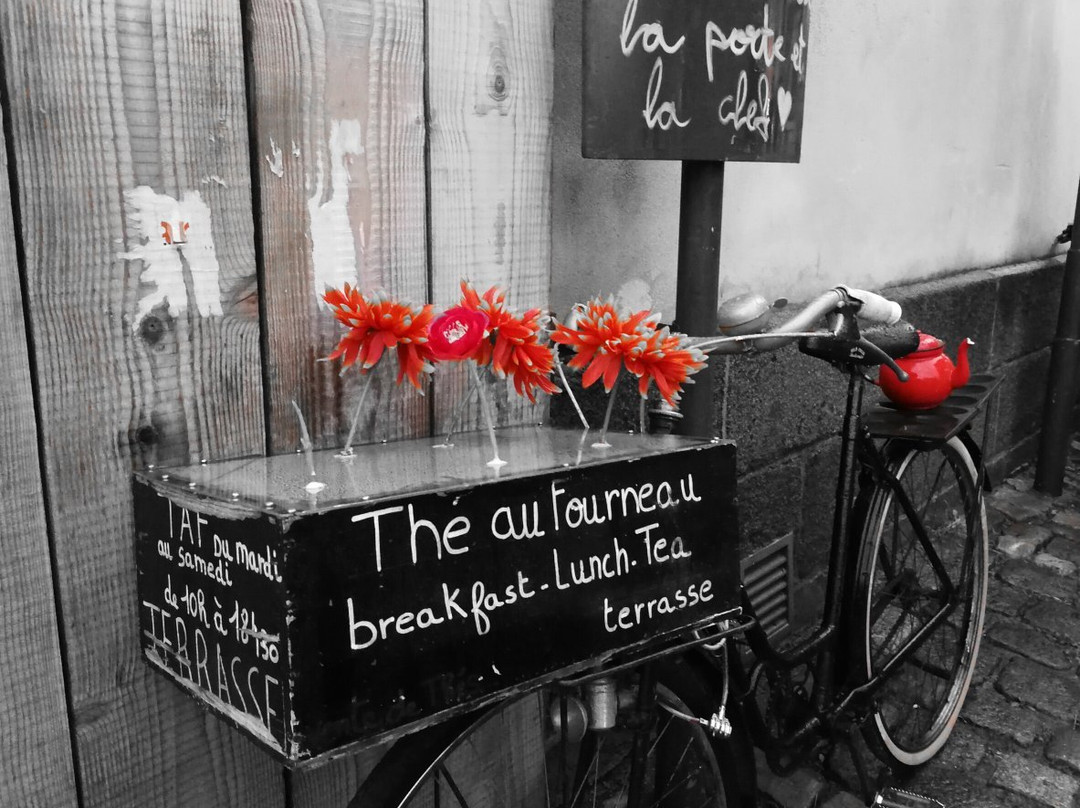 la porte et
la clef
Thé au Fourneau
breakfast - Lunch. Tea
terrasse
TAF
Du mardi
au samedi
de 10h à 18h30
TERRASSE